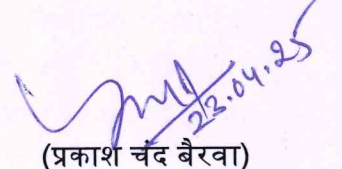 23.04.25
(प्रकाश चंद बैरवा)